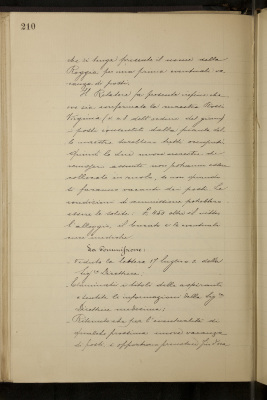 210
che si tenga presente il nome della
Roggia per una prima eventuale va-
canza di posti.
Il Relatore fa presente infine che,
ora sia confermata la maestra
Virginia (n. 2 dell'ordine del giorno)
i posti consentiti dalla pianta del-
le maestre
Quindi le due nuove maestre da
non potranno esser
collocate in ruolo, se non quando
si faranno vacanti dei posti. Le
condizioni di ammissione potrebbero
essere le solite. L. 450 oltre il vitto
e l'alloggio, il bucato e le
cure mediche.
La Commissione:
Veduta la lettera 1º Luglio della
Sig.ra Direttrice
Esaminati i titoli delle aspiranti
e sentite le informazioni della Sig.ra
Direttrice medesima;
Ritenuto che per l'eventualità di
qualche prossima nuova vacanza
di posti è opportuno prendere fin d'ora